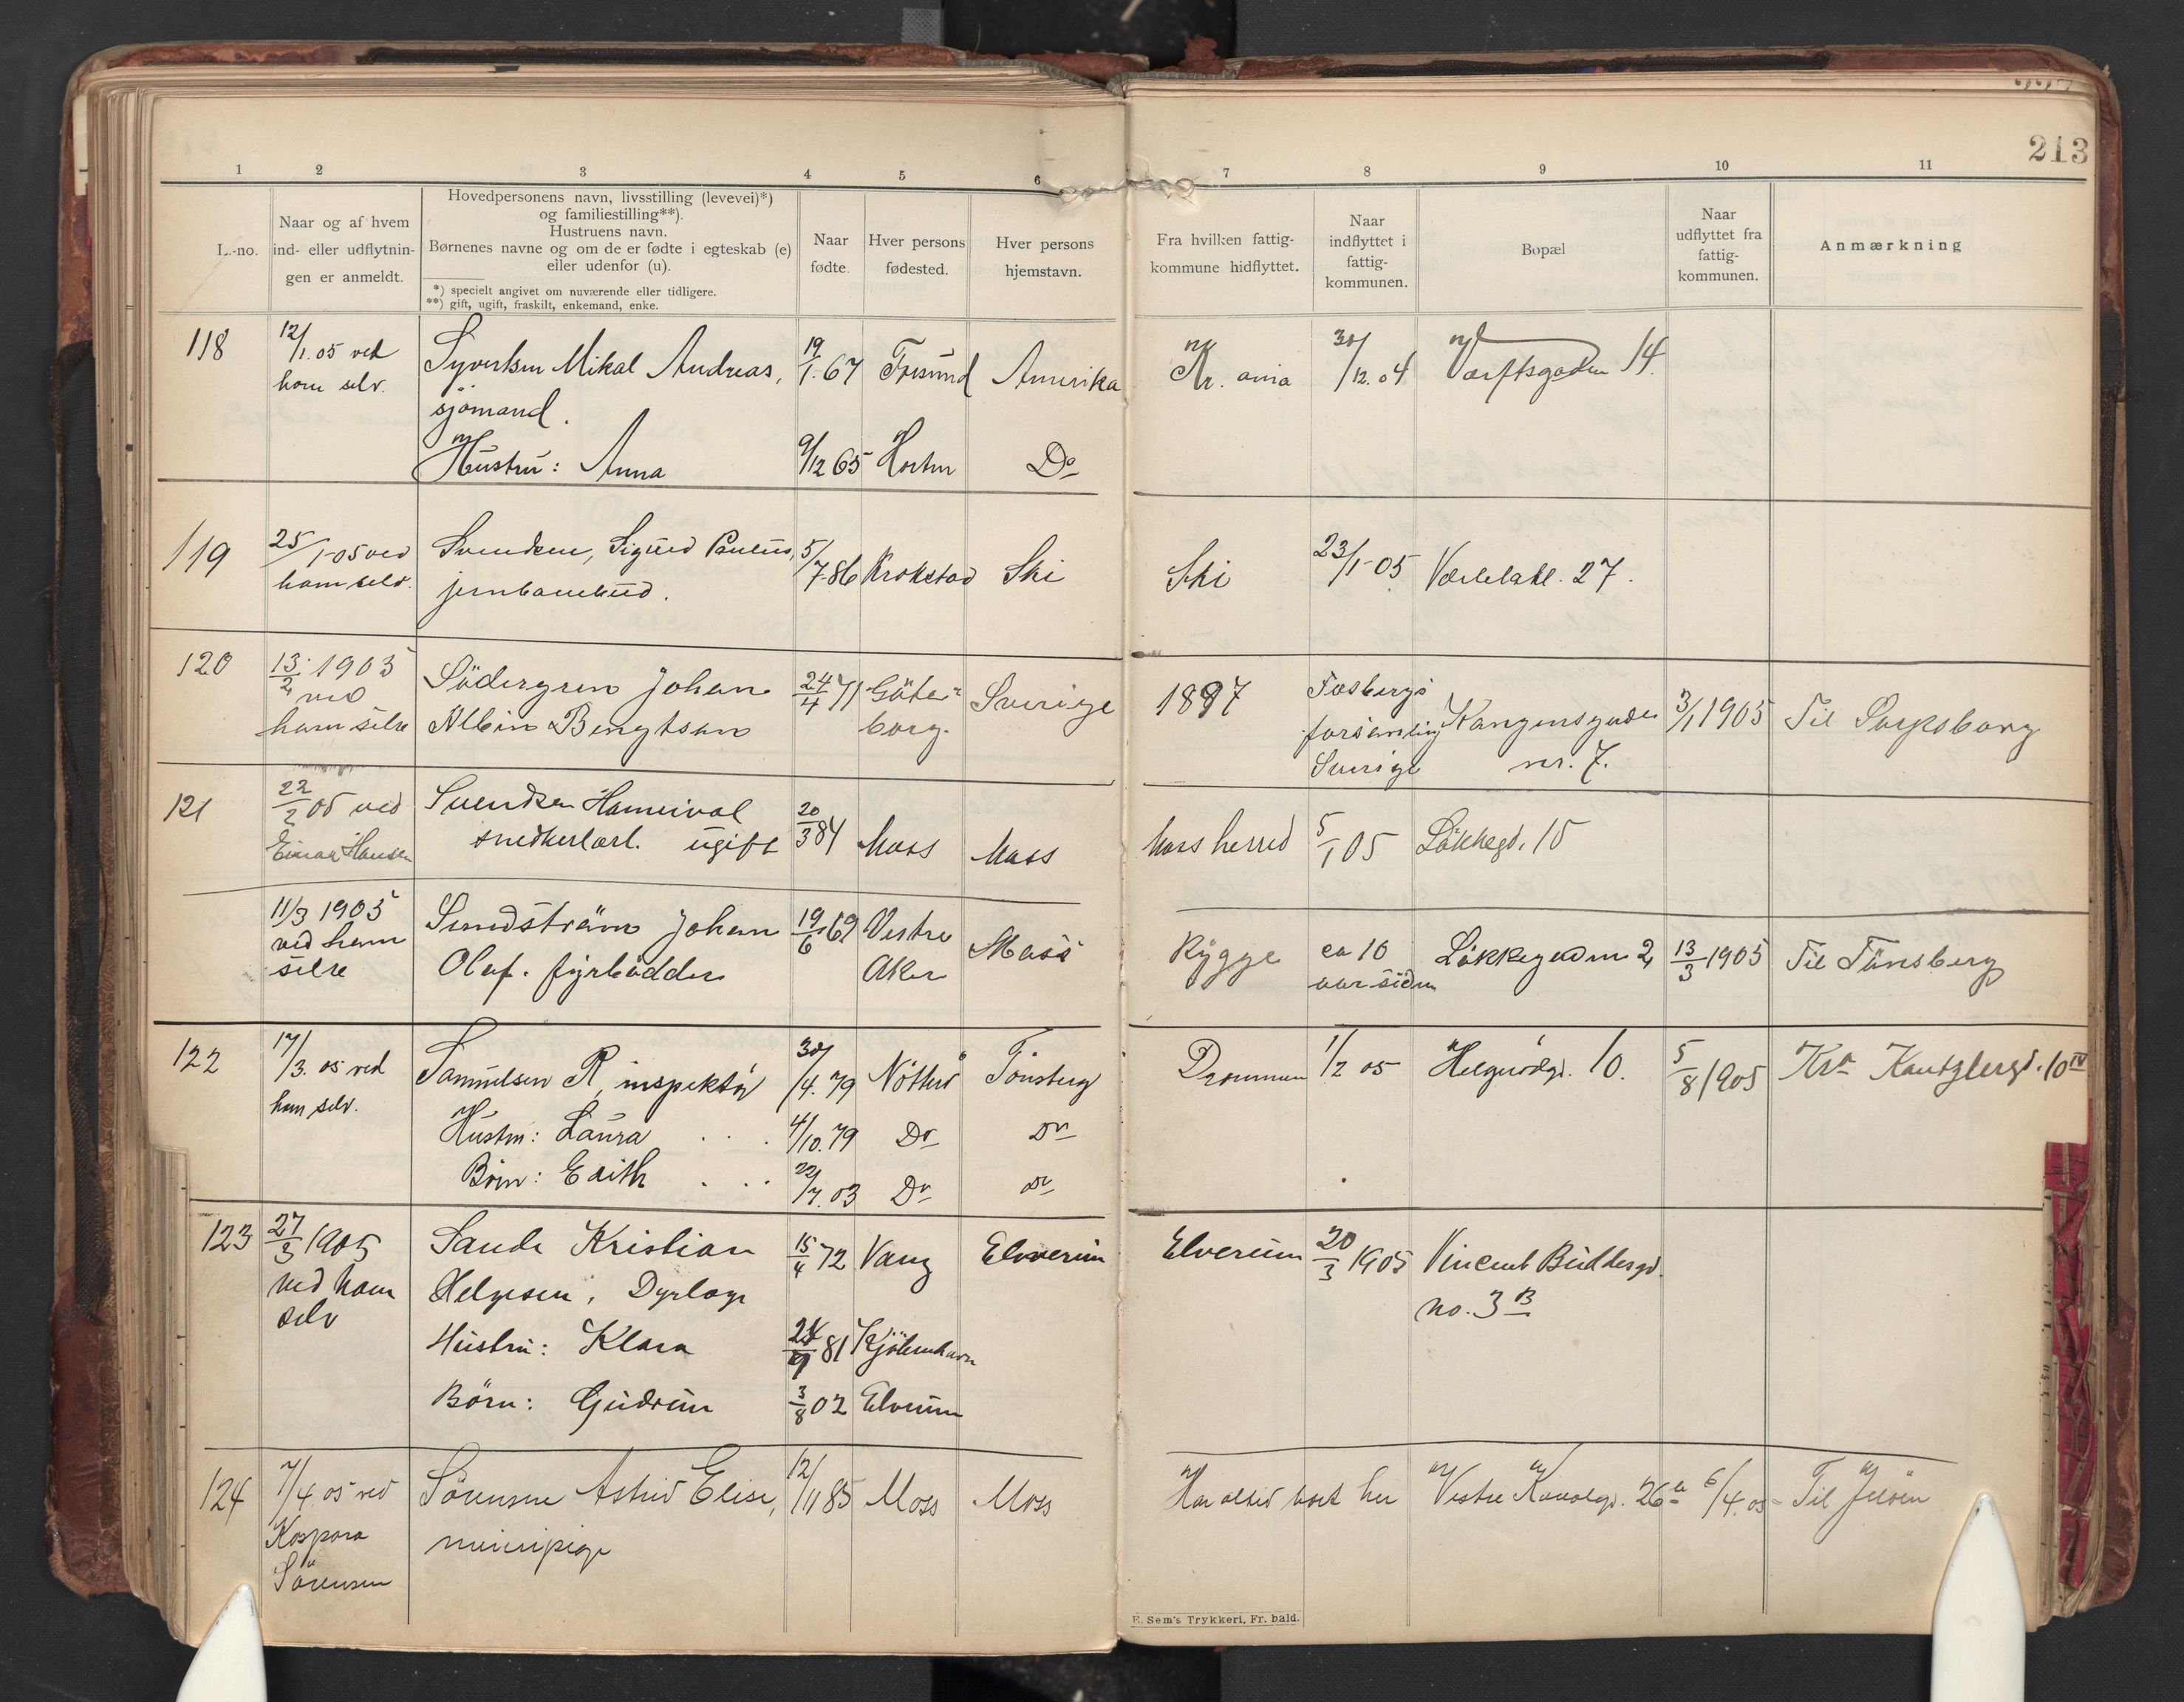 213
1 2 3 4 5 6 7 8 9 10 11
L.-no.
Naar og af hvem
ind- eller udflytnin-
gen er anmeldt.
Hovedpersonens navn, livsstilling (levevei)*)
og familiestilling**).
Hustruens navn.
Børnenes navne og om de er fødte i egteskab (e)
eller udenfor (u).
*) specielt angivet om nuværende eller tidligere.
**) gift, ugift, fraskilt, enkemand, enke.
Naar
fødte.
Hver persons
fødested.
Hver persons
hjemstavn.
Fra hvilken fattig-
kommune hidflyttet.
Naar
indflyttet i
fattig-
kommunen.
Bopæl
Naar
udflyttet fra
fattig-
kommunen.
Anmærkning
118 12/1.05 ved Syvertsen Mikal Andreas, 19/1.67 Amerika Kr.ania 30/12.04 Værftsgaden 14.
ham selv. sjömand.
Hustru: Anna 9/12 65 Horten Do
119 25/1-05 ved Svendsen, Sigurd Paulus, 5/7-86 Krokstad Ski Ski 23/1-05 27.
ham selv. jernbanebud.
120 13/2 1905 Södergren Johan 24/4 71 Göte- Sverige 1897
ved Albin Bengtson borg. forsamling Kongensgaden 3/1 1905 Til Sarpsborg
ham selve Sverige nr. 7.
121 22/2 05 ved Svendsen Hannival 20/3 84 Moss Moss Moss herred 5/1 05 Lökkegd. 15
Einar Hansen snedkerlærl. ugift
11/3 1905 Sundström Johan 19/6 69 Vestre Moss Rygge ca 10 Lökkegaden 2 13/3 1905 Til Tönsberg
ved ham Olaf. fyrbödder Aker aar siden
selve
122 17/3. 05 ved Samuelsen R, inspektör 30/4. 79 Nötterö Tönsberg Drammen 1/2 05 Helgerödgd. 10. 5/8 1905 Kra 10 IV
ham selv. Hustru: Laura . . . 4/10. 79 Do Do
Börn: Edith . . . 22/7. 03 Do Do
123 27/3 1905 Sande Kristian 15/4 72 Vang Elverum Elverum 20/3 1905 Vincent Buddesgd.
ved ham Helgesen, Dyrlæge no. 3 B
selv
Hustru: Klara 81 Kjöbenhavn
Börn: Gudrun 3/8 02 Elverum
124 7/4 05 ved Sörensen Astrid Elise, 12/11 85 Moss Moss Har altid boet her Vestre Kanalgd. 26 a 6/4 05 Til Jelöen
Kaspara
Sörensen
E. Sem's Trykkeri, Fr. hald.